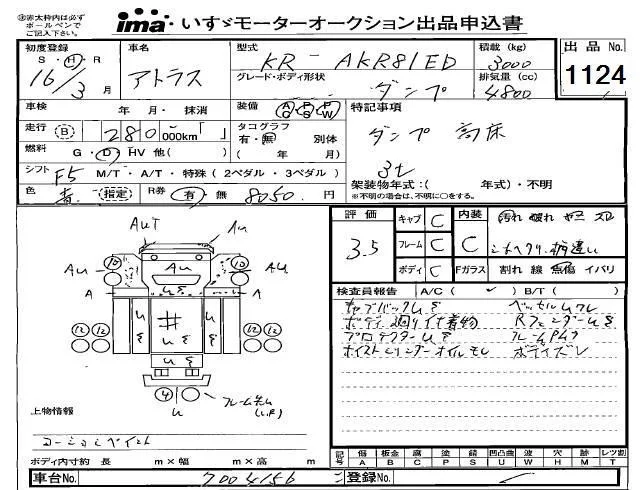 ※赤太枠内は必ず
ボールペンで
ご記入下さい。
ima いすゞモーターオークション出品申込書
初度登録 S・H・R 16/3月
車名 アトラス
型式 KR-AKR81ED
積載 (kg) 3000
出品 No. 1124
グレード・ボディ形状 ダンプ
排気量 (cc) 4800
車検 年 月・抹消
装備 AC PS PW
特記事項
走行 B 280 000km「 」
タコグラフ 有・無 別体 ( 年 月)
ダンプ 高床
燃料 G・D・HV 他( )
3t
シフト F5 M/T・A/T・特殊(2ペダル・3ペダル)
架装物年式:( 年式)・不明
※不明の場合は、不明に○をする。
色 青 (指定) R券 有・無 8050 円
評価 3.5
キャブ C
フレーム C
ボディ C
内装 C
Fガラス
汚れ 破れ ヤニ スレ
シートヘタリ、柄違い
割れ 線 焦傷 イバリ
検査員報告 A/C( ✓ ) B/T( )
キャブバックUS ベッセルUワレ
ボディ廻り付着物 RフェンダーUS
プロテクターUS
ホイストシリンダーオイルモレ ボディズレ
AUT Au
10 Au 10
Au AU
A US A
U S # U S
12 12 12 12
US
4
U フレーム先ム (L,R)
上物情報
コーションペイント
ボディ内寸約 長 m×幅 m×高 m
記号 傷 A 板金 B 腐 C 塗 P 錆 S 凹凸曲 U 波 W 穴 H 跡 X 交 ✕ 汚 M レツ割 T
車台No. 7004156
登録No.